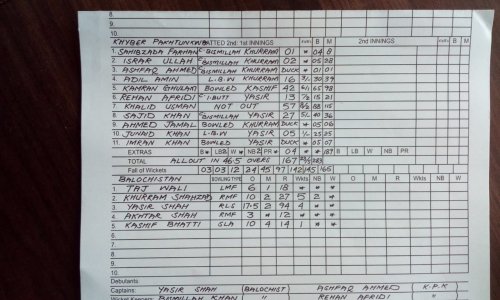 8.
9.
10.
KHYBER PAKHTUNKWA BATTED 2nd: 1st INNINGS mnts B M 2nd INNINGS mnts B M
1. SAHIBZADA FARHAN C BISMILLAH KHURRAM 01 * 04 8
2. ISRAR ULLAH C BISMILLAH KHURRAM 02 * 05 28
3. ASHFAQ AHMED C BISMILLAH KHURRAM DUCK * 01 01
4. ADIL AMIN L.B.W KHURRAM 16 3/- 30 39
5. KAMRAN GHULAM BOWLED KASHIF 42 6/1 65 98
6. REHAN AFRIDI C T.BUTT YASIR 13 1/- 15 21
7. KHALID USMAN NOT OUT 57 88 115
8. SAJID KHAN C BISMILLAH YASIR 27 5/- 40 36
9. AHMED JAMAL BOWLED KHURRAM DUCK * 05 06
10. JUNAID KHAN L.B.W YASIR 05 1/- 25 25
11. IMRAN KHAN BOWLED YASIR DUCK * 05 07
EXTRAS B * LB 2 W * NB 2 PR * 04 * * 187 B LB W NB PR
TOTAL ALL OUT IN 46.5 OVERS 167 283
Fall of Wickets 03 03 12 24 45 97 142 145 165
BALOCHISTAN BOWLING TYPE O M R Wkts NB W O M R Wkts NB W
1. TAJ WALI LMF 6 1 18 * * *
2. KHURRAM SHAHZAD RMF 10 2 27 5 2 *
3. YASIR SHAH RLS 17.5 2 94 4 * *
4. AKHTAR SHAH RMF 3 * 12 * * *
5. KASHIF BHATTI SLA 10 4 14 1 * *
6.
7.
8.
9.
10.
Debutants
Captains: YASIR SHAH (BALOCHIST) ASHFAQ AHMED (K.P.K)
Wicket Keepers: BISMILLAH KHAN ( " REHAN AFRIDI ( "